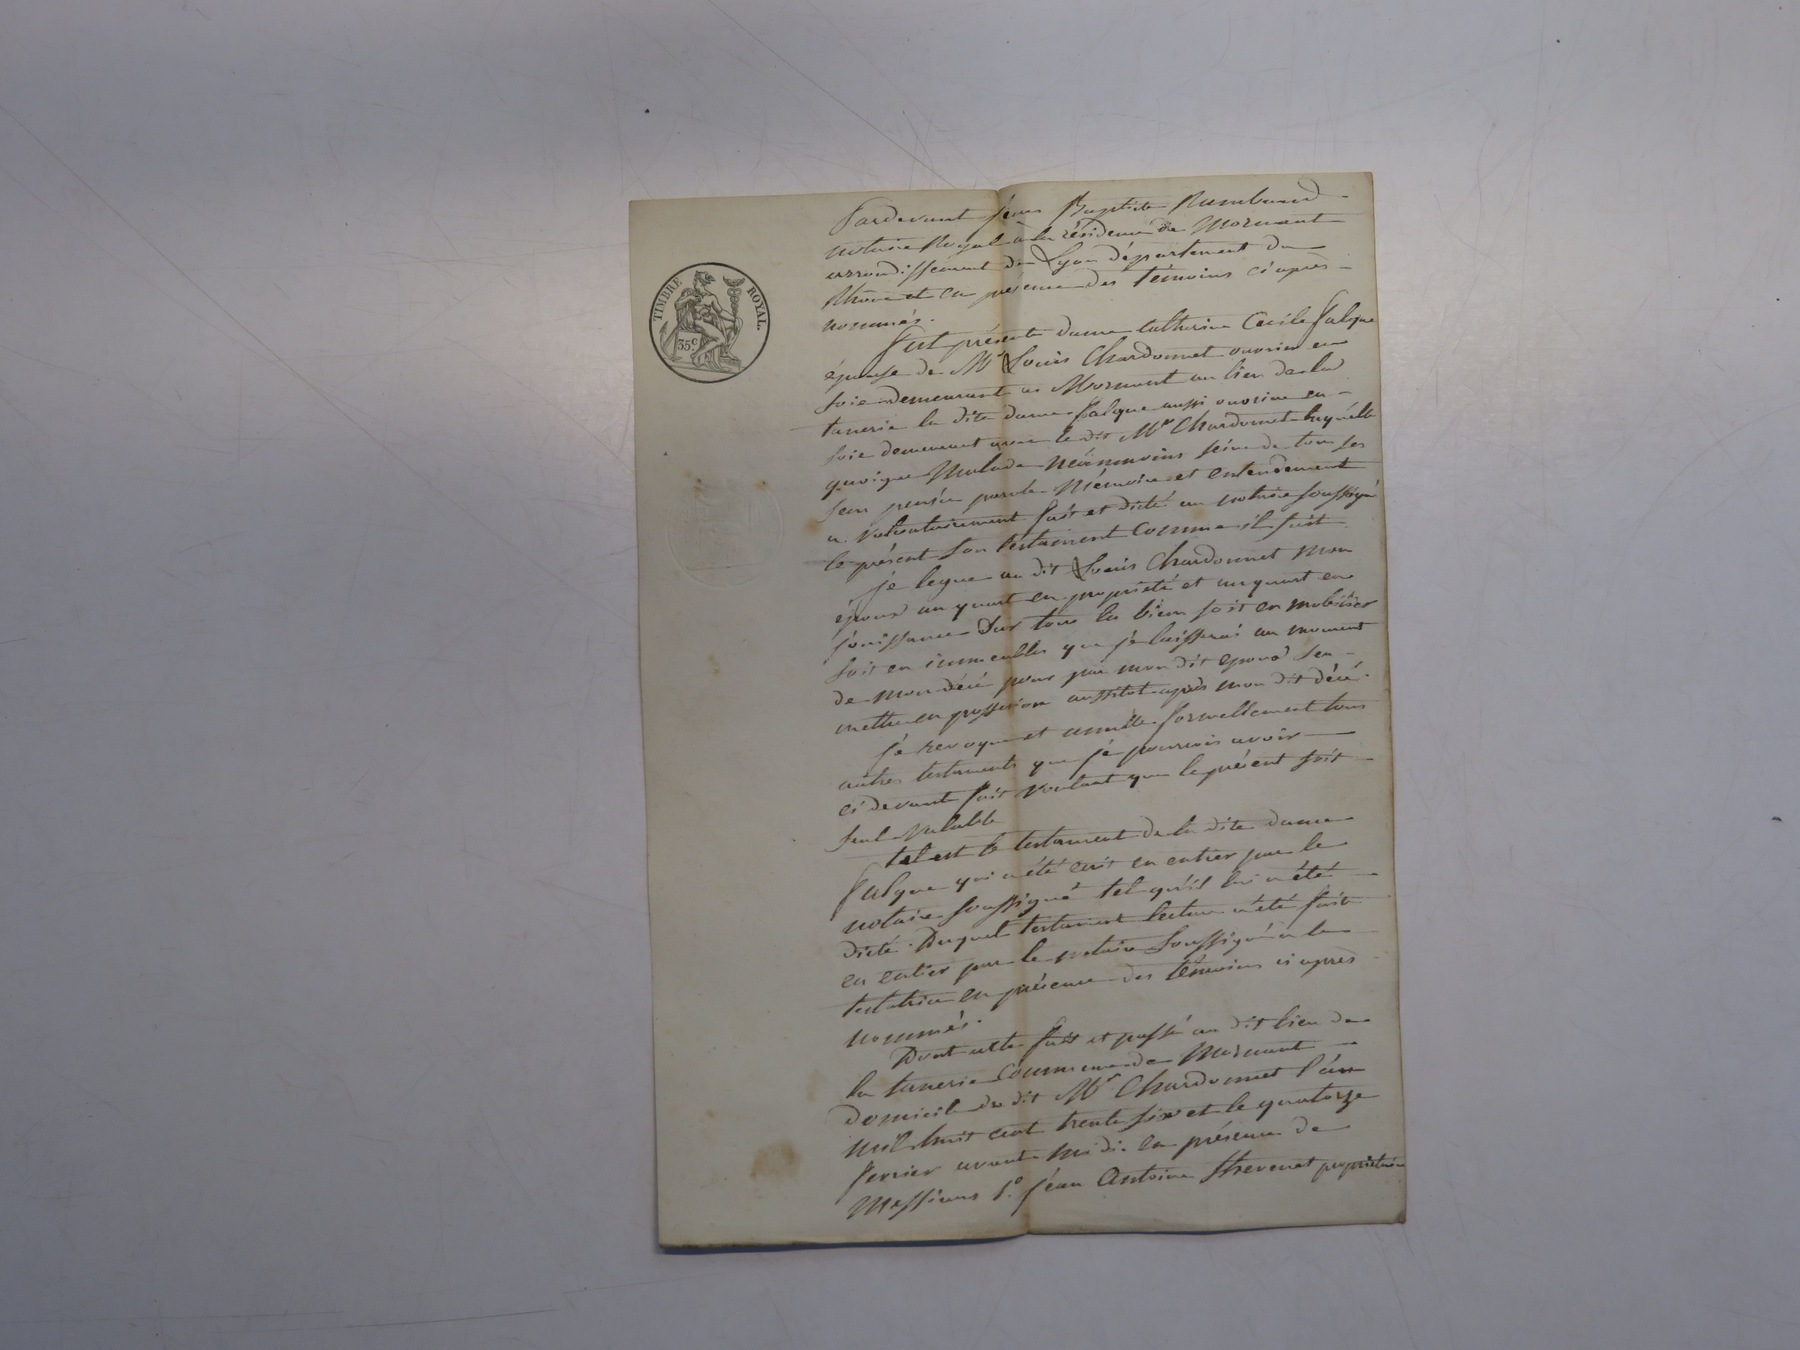 TIMBRE ROYAL.
35c
Pardevant jean Baptiste Rambaud
notaire Royal à la résidence de Mornant
arrondissement de Lyon département du
Rhône et en présence des témoins ci après
nommés.
fut présente dame Catherine Cécile falque
épouse de Mr Louis Chardonnet ouvrier en
soie demeurant a Mornant au lieu de la
tanerie la dite dame falque aussi ouvrière en
soie demeurant avec le dit Mr Chardonnet laquelle
quoique Malade néanmoins seine de tous ses
sens pensée parole Mémoire et entendement
a volontairement fait et dicté au notaire soussigné
le présent son testament comme il suit
je legue au dit Louis Chardonnet mon
époux un quart en propriété et un quart en
jouissance Sur tous les biens soit en mobilier
soit en immeubles que je laisserai au moment
de mon décé pour par mon dit epoux sen
mettre en possession aussitot après mon dit décé.
je revoque et annulle formellement tous
autres testaments que je pourrois avoir
ci devant fait voulant que le présent soit
seul valable
tel est le testament de la dite dame
falque qui a été écrit en entier par le
notaire soussigné tel qu'il lui a été
dicté. Duquel testament lecture a été fait
en entier par le notaire soussigné a la
testatrice en présence des témoins ci après
nommés.
Dont acte fait et passé au dit lieu de
la tanerie Commune de Mornant
domicile du dit Mr Chardonnet l'an
mil huit cent trente six et le quatorze
fevrier avant midi en présence de
Messieurs 1o jean Antoine thevenet propriétaire